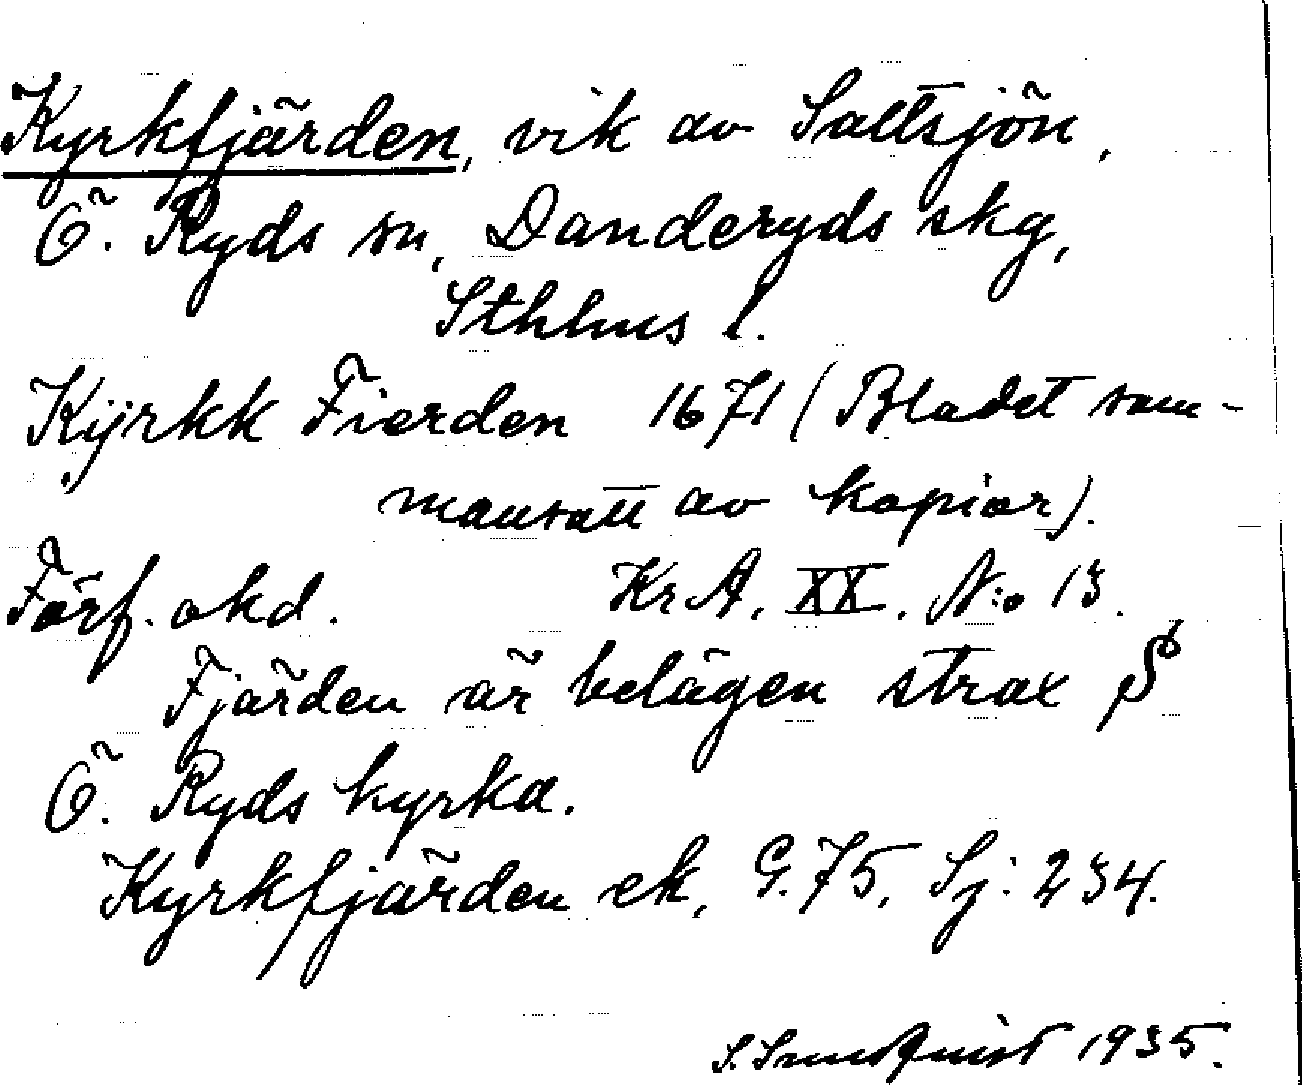 Kyrkfjärden, vik av Saltsjön,
Ö. Ryds sn, Danderyds skg,
Sthlms l.
Kÿrkk Fierden 1671 (Bladet sam-
mansatt av kopior).
Förf. okd. Kr A. XX. N:o 13.
Fjärden är belägen strax S
Ö. Ryds kyrka.
Kyrkfjärden ek, G. 75, Sj: 234.
S. Sundquist 1935.